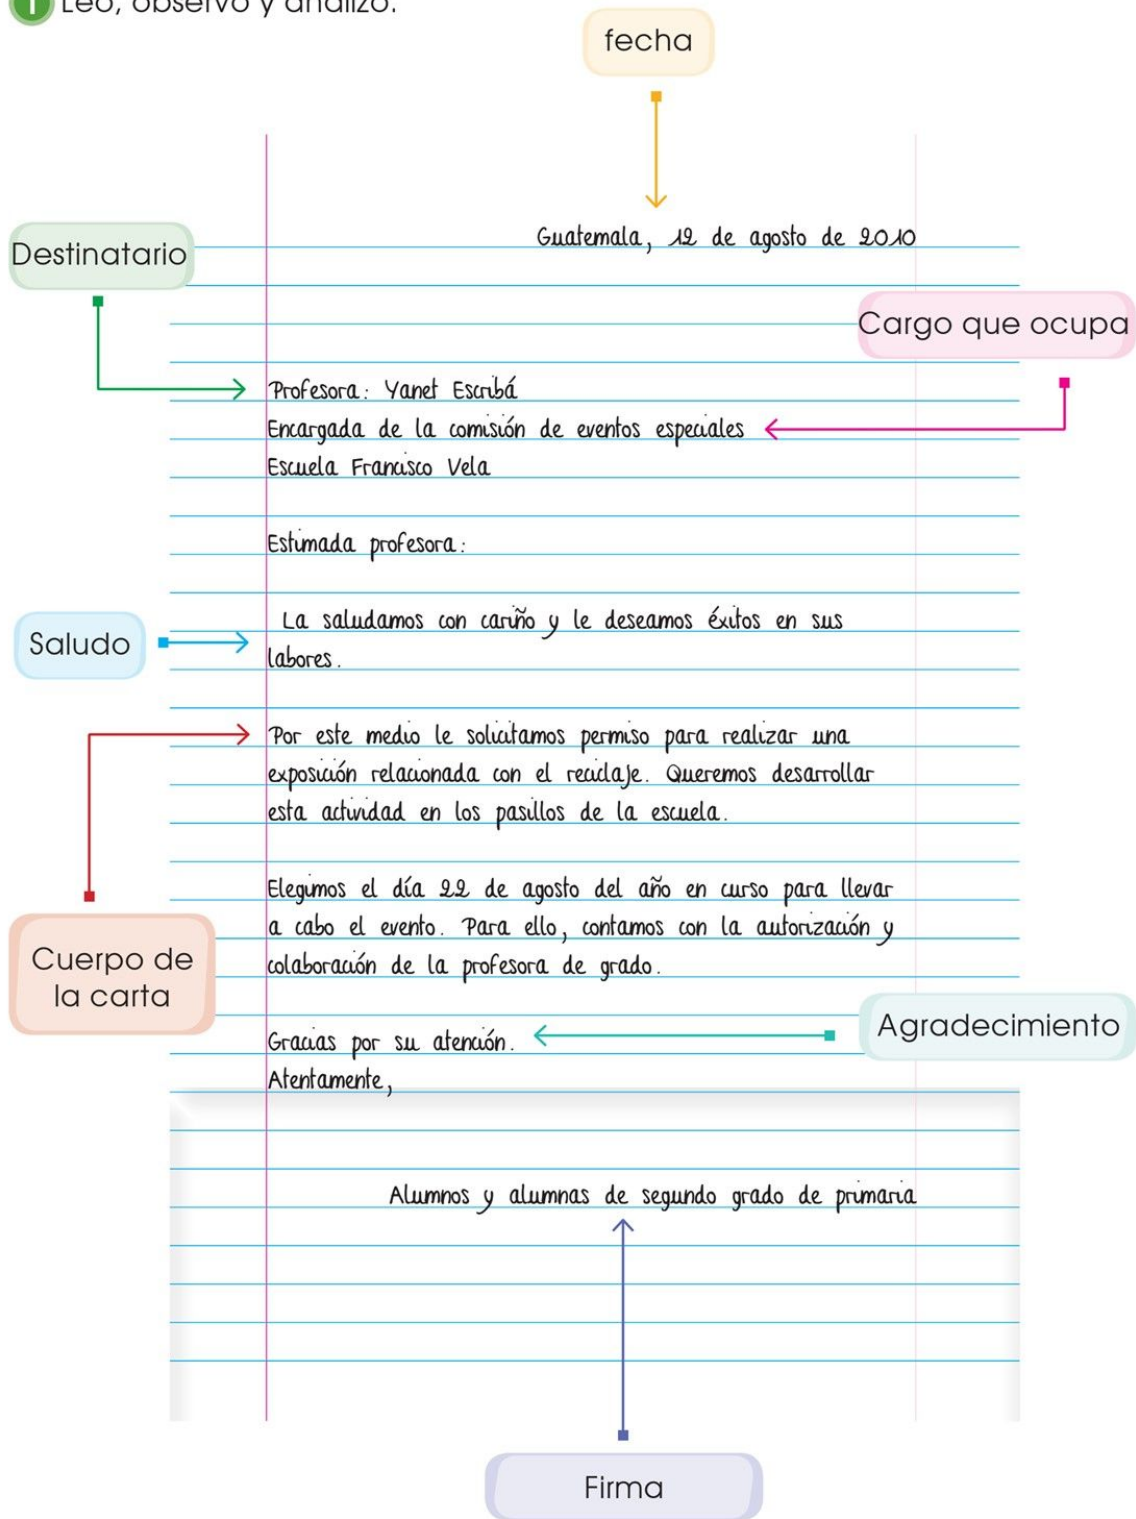 1 Leo, observo y analizo.
fecha
Guatemala, 12 de agosto de 2010
Destinatario
Cargo que ocupa
Profesora: Yanet Escribá
Encargada de la comisión de eventos especiales
Escuela Francisco Vela
Estimada profesora:
Saludo
La saludamos con cariño y le deseamos éxitos en sus
labores.
Por este medio le solicitamos permiso para realizar una
exposición relacionada con el reciclaje. Queremos desarrollar
esta actividad en los pasillos de la escuela.
Elegimos el día 22 de agosto del año en curso para llevar
a cabo el evento. Para ello, contamos con la autorización y
colaboración de la profesora de grado.
Cuerpo de
la carta
Gracias por su atención.
Agradecimiento
Atentamente,
Alumnos y alumnas de segundo grado de primaria
Firma